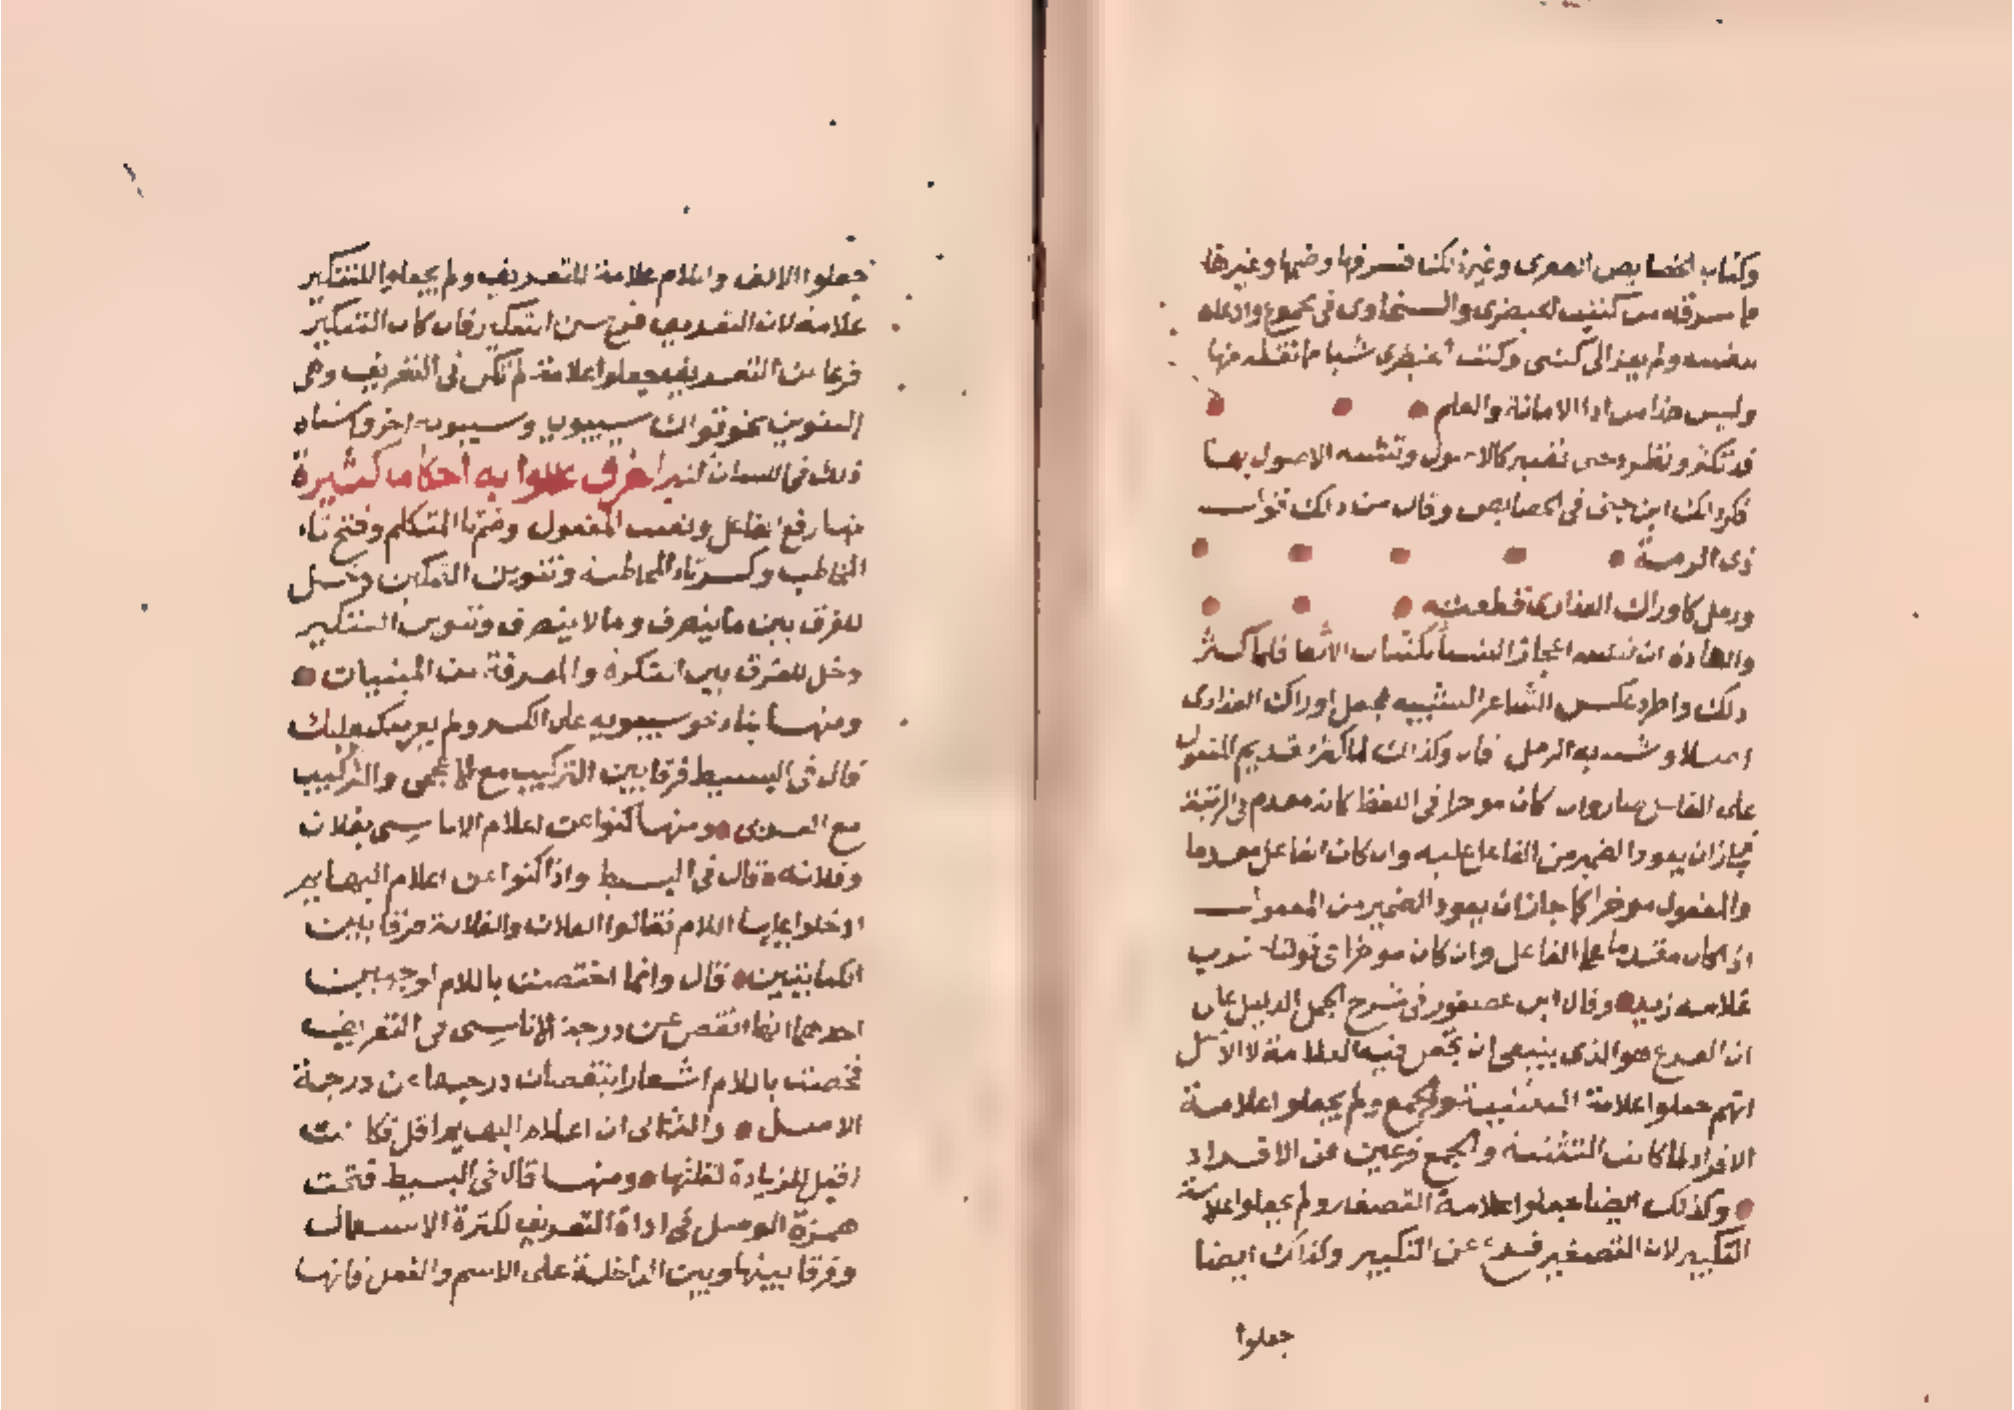 وكتاب الخصايص الصغرى وغير ذلك فسرقها وضمها وغيرها
مما سرقه من كتب الخيضرى والسخاوى فى مجموع وادعاه
لنفسه ولم يعز الى كتبى وكتب الخيضرى شيا مما نقله منها
وليس هذا من ادا الامانة والعلم
قد تكثر ونظرد حتى تصير كالاصول وتشبه الاصول بها
ذكر ذلك ابن جنى فى الخصايص وقال من ذلك قول
ذى الرمة
ورمل كاوراك العذارى قطعته
والعادة ان تشبه اعجاز النسا بكثبان الانقا فلما كثر
ذلك واطرد عكس الشاعر التشبيه فجعل اوراك العذارى
اصلا وشبه به الرمل قال وكذلك لما كثر تقديم المفعول
على الفاعل صار وان كان موخرا فى اللفظ كانه مقدم فى الرتبة
فجاز ان يعود الضمير من الفاعل عليه وان كان الفاعل مقدما
والمفعول موخرا كما جاز ان يعود الضمير من المفعول
اذا كان مقدما على الفاعل وان كان موخرا فى قولنا ضرب
غلامه زيد وقال ابن عصفور فى شرح الجمل الدليل على
ان الفرع هو الذى ينبغى ان تجعل فيه العلامة لا الاصل
انهم جعلوا علامة للتثنية والجمع ولم يجعلوا علامة
الافراد لما كانت التثنية والجمع فرعين عن الافراد
وكذلك ايضا جعلوا علامة التصغير ولم يجعلوا علامة
التكبير لان التصغير فرع عن التكبير وكذلك ايضا
جعلوا
جعلوا الالف واللام علامة للتعريف ولم يجعلوا للتنكير
علامة لان التعريف فرع عن التنكير فان كان التنكير
فرعا عن التعريف جعلوا علامة لم تكن فى التعريف وهى
التنوين نحو قولك سيبويه وسيبويه اخر واشباه
ذلك فى اللسان كثير الفرق عللوا به احكاما كثيرة
منها رفع الفاعل ونصب المفعول وضم تا المتكلم وفتح تاء
المخاطب وكسر تاء المخاطبة وتنوين التمكين دخل
للفرق بين ما ينصرف وما لا ينصرف وتنوين التنكير
دخل للفرق بين النكرة والمعرفة من المبنيات
ومنها بناء نحو سيبويه على الكسر ولم يعرب كبعلبك
قال فى البسيط فرقا بين التركيب مع الاعجمى والتركيب
مع العربى ومنها كنوا عن اعلام الاناسى بفلان
وفلانه قال فى البسيط واذا كنوا عن اعلام البهايم
ادخلوا عليها اللام فقالوا الفلان والفلانة فرقا بين
الكنايتين قال وانما اختصت باللام لوجهين
احدهما انها انقص عن درجة الاناسى فى التعريف
فخصت باللام اشعارا بنقصان درجتها عن درجة
الاصل والثانى ان اعلام البهايم اقل فكانت
اقبل للزيادة لقلتها ومنها قال فى البسيط فتحت
همزة الوصل فى اداة التعريف لكثرة الاستعمال
وفرقا بينها وبين الداخلة على الاسم والفعل فانها